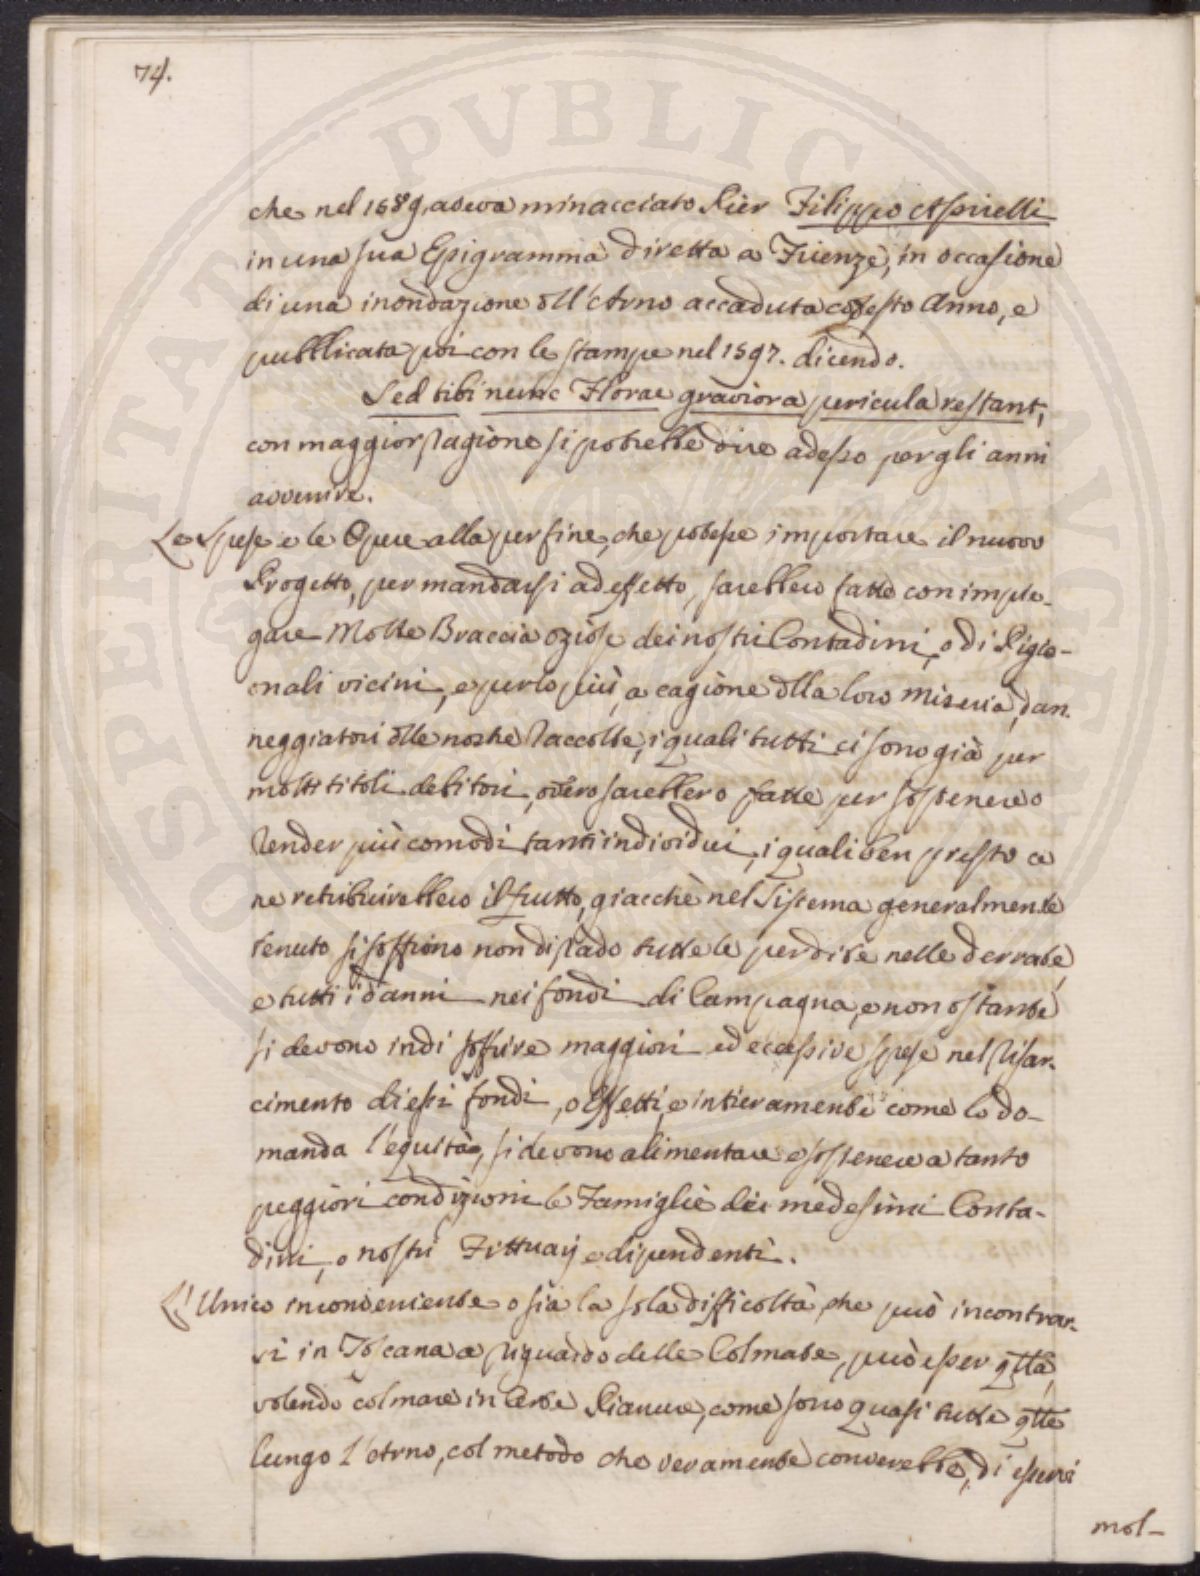 74.
che nel 1589. aveva minacciato Pier Filippo Assirelli
in una sua Epigramma diretta a Firenze, in occasione
di una inondazione dll'Arno accaduta codesto Anno, e
pubblicata poi con le stampe nel 1597. dicendo.
Sed tibi nunc Florae graviora pericula restant,
con maggior ragione si potrebbe dire adesso per gli anni
avvenire.
Le Spese e le Opere alla per fine, che potesse importare il nuovo
Progetto, per mandarsi ad effetto, sarebbero fatte con impie-
gare Molte Braccia oziose dei nostri Contadini, o di Pigio-
onali vicini, e per lo più, a cagione dlla loro miseria, dan-
neggiatori dlle nostre raccolte, i quali tutti ci sono già per
molti titoli debitori, overo sarebbero fatte per sostenere o
render più comodi tanti individui, i quali ben presto ce
ne retribuirebbero il frutto, giacchè nel Sistema generalmente
tenuto si soffrono non di rado tutte le perdite nelle derrate,
e tutti i danni nei fondi di Campagna, e non ostante
si devono indi soffrire maggiori ed eccessive spese nel risar-
cimento di essi fondi, o Effetti, e intieramente come lo do-
manda l'equità, si devono alimentare e sostenere a tanto
peggiori condizioni le Famiglie dei medesimi Conta-
dini, o nostri Fittuarj e dipendenti.
L'Unico inconveniente o sia la sola difficoltà che può incontrar-
si in Toscana a riguardo delle Colmate, può esser qlla,
volendo colmare in Certe Pianure, come sono quasi tutte qlle
lungo l'Arno, col metodo che veramente converebbe, di esservi
mol-
SPERITATI PUBLIC AUGE